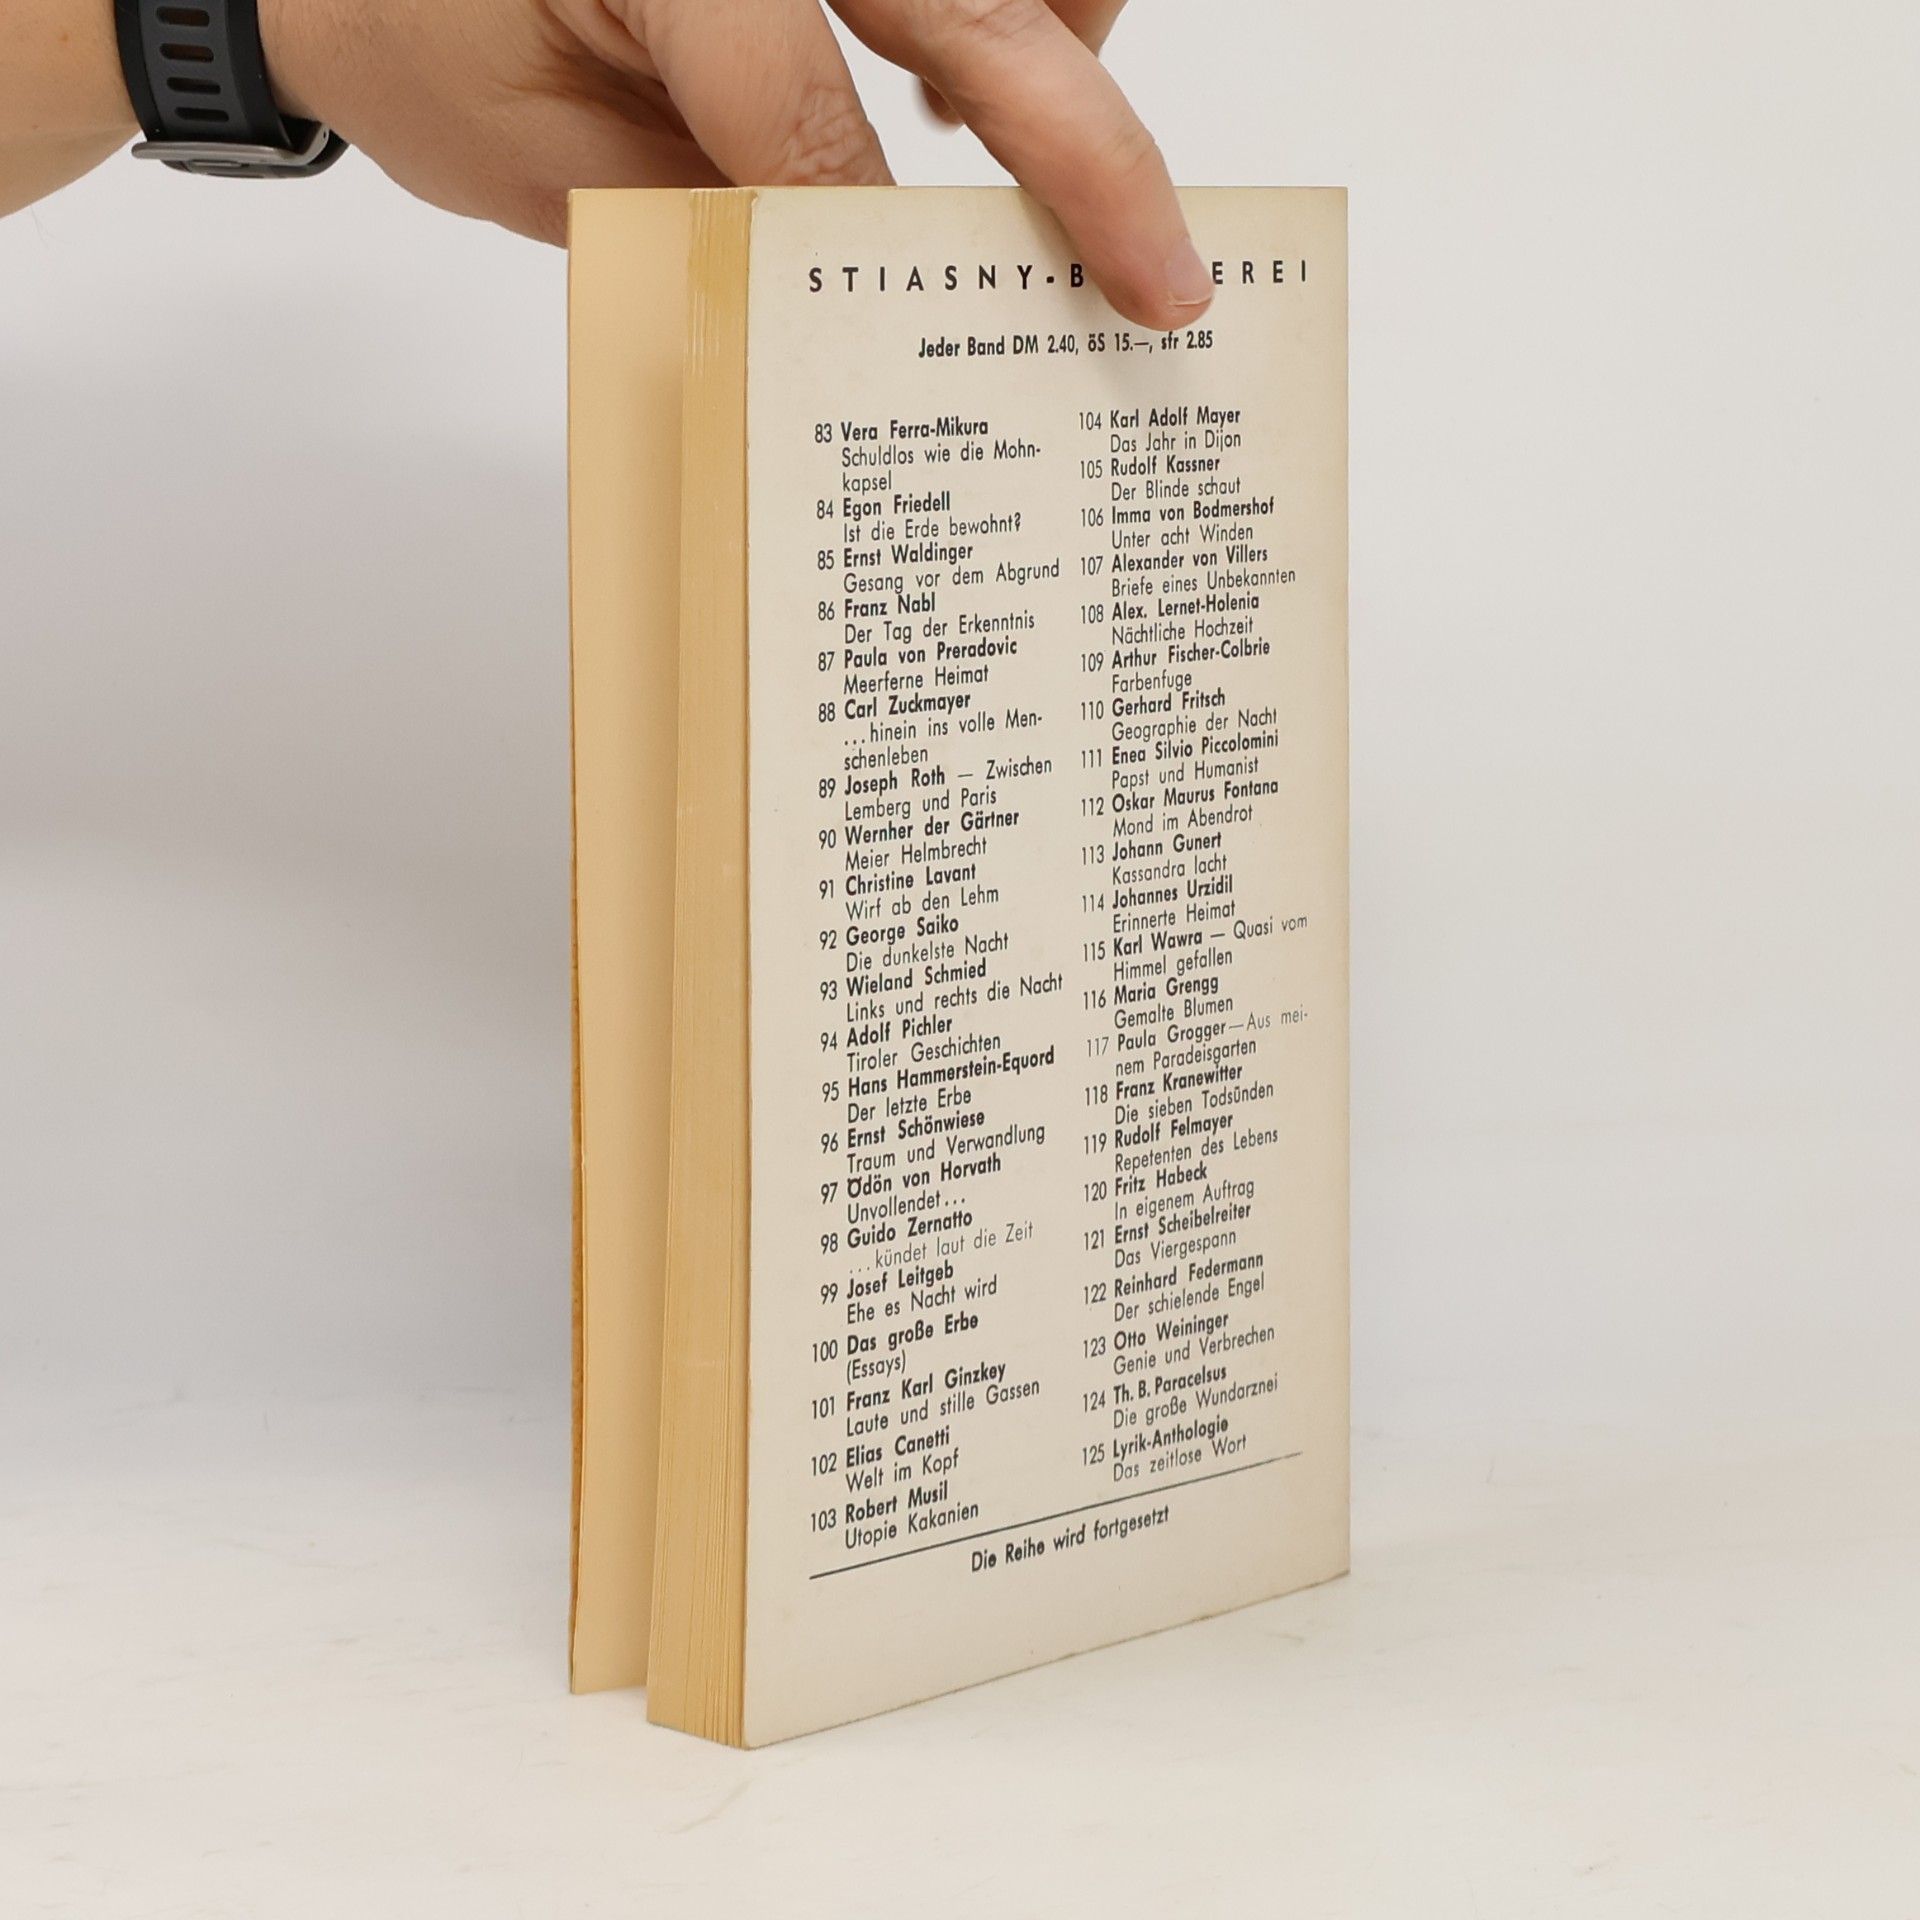 STIASNY-B EREI
Jeder Band DM 2.40, öS 15.—, sfr 2.85
83 Vera Ferra-Mikura
Schuldlos wie die Mohn-
kapsel
84 Egon Friedell
Ist die Erde bewohnt?
85 Ernst Waldinger
Gesang vor dem Abgrund
86 Franz Nabl
Der Tag der Erkenntnis
87 Paula von Preradovic
Meerferne Heimat
88 Carl Zuckmayer
...hinein ins volle Men-
schenleben
89 Joseph Roth — Zwischen
Lemberg und Paris
90 Wernher der Gärtner
Meier Helmbrecht
91 Christine Lavant
Wirf ab den Lehm
92 George Saiko
Die dunkelste Nacht
93 Wieland Schmied
Links und rechts die Nacht
94 Adolf Pichler
Tiroler Geschichten
95 Hans Hammerstein-Equord
Der letzte Erbe
96 Ernst Schönwiese
Traum und Verwandlung
97 Ödön von Horvath
Unvollendet...
98 Guido Zernatto
...kündet laut die Zeit
99 Josef Leitgeb
Ehe es Nacht wird
100 Das große Erbe
(Essays)
101 Franz Karl Ginzkey
Laute und stille Gassen
102 Elias Canetti
Welt im Kopf
103 Robert Musil
Utopie Kakanien
104 Karl Adolf Mayer
Das Jahr in Dijon
105 Rudolf Kassner
Der Blinde schaut
106 Imma von Bodmershof
Unter acht Winden
107 Alexander von Villers
Briefe eines Unbekannten
108 Alex. Lernet-Holenia
Nächtliche Hochzeit
109 Arthur Fischer-Colbrie
Farbenfuge
110 Gerhard Fritsch
Geographie der Nacht
111 Enea Silvio Piccolomini
Papst und Humanist
112 Oskar Maurus Fontana
Mond im Abendrot
113 Johann Gunert
Kassandra lacht
114 Johannes Urzidil
Erinnerte Heimat
115 Karl Wawra — Quasi vom
Himmel gefallen
116 Maria Grengg
Gemalte Blumen
117 Paula Grogger — Aus mei-
nem Paradeisgarten
118 Franz Kranewitter
Die sieben Todsünden
119 Rudolf Felmayer
Repetenten des Lebens
120 Fritz Habeck
In eigenem Auftrag
121 Ernst Scheibelreiter
Das Viergespann
122 Reinhard Federmann
Der schielende Engel
123 Otto Weininger
Genie und Verbrechen
124 Th. B. Paracelsus
Die große Wundarznei
125 Lyrik-Anthologie
Das zeitlose Wort
Die Reihe wird fortgesetzt